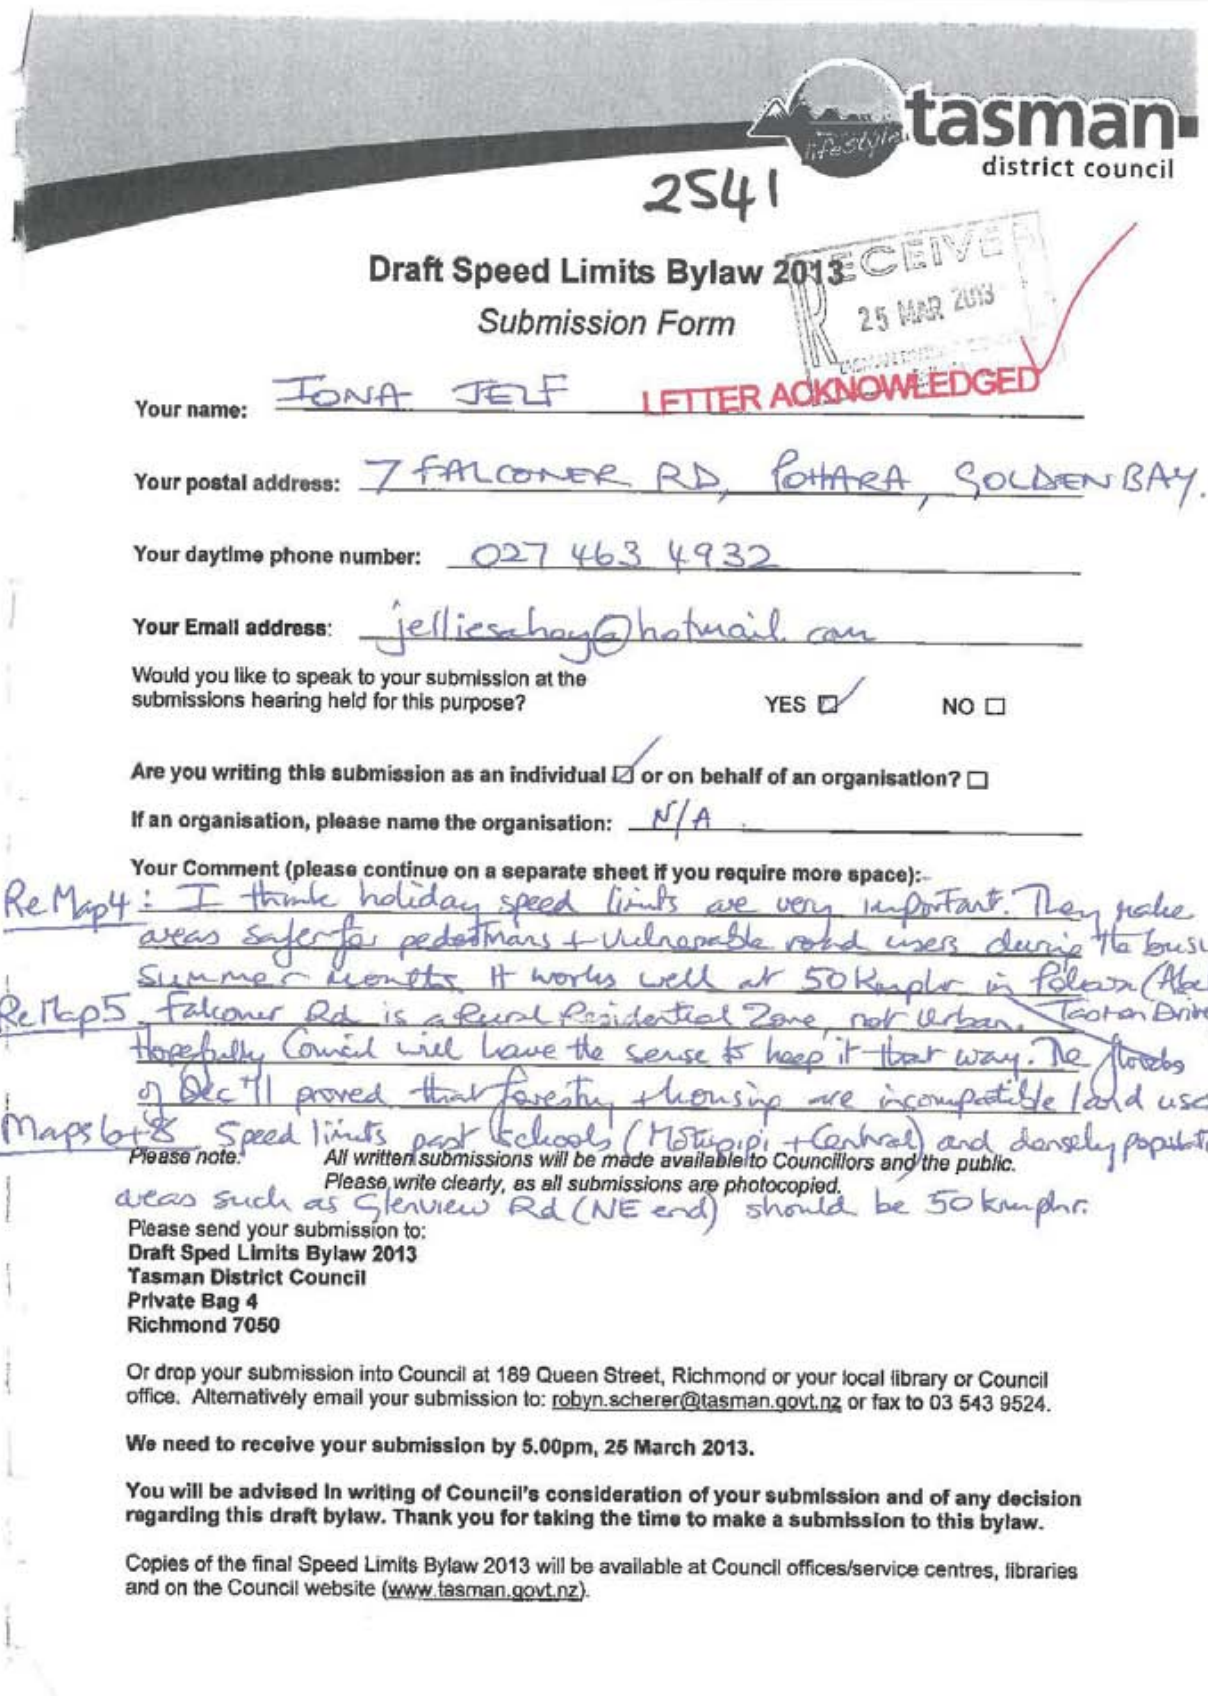 lifestyle
tasman
district council
2541
Draft Speed Limits Bylaw 2013
RECEIVE
25 MAR 2013
Submission Form
LETTER ACKNOWLEDGED
Your name: IONA JELF
Your postal address: 7 FALCONER RD, POHARA, GOLDEN BAY.
Your daytime phone number: 027 463 4932
Your Email address: jelliesahoy@hotmail.com
Would you like to speak to your submission at the
submissions hearing held for this purpose? YES ☑ NO ☐
Are you writing this submission as an individual ☑ or on behalf of an organisation? ☐
If an organisation, please name the organisation: N/A
Your Comment (please continue on a separate sheet if you require more space):-
Re Map4: I think holiday speed limits are very important. They make
areas safer for pedestrians + vulnerable road users during the busy
summer months. It works well at 50 Kmphr in Pohara (Abel
Re Map5. Falconer Rd is a Rural Residential Zone, not Urban. Tasman Drive
Hopefully Council will have the sense to keep it that way. The floods
of Dec '11 proved that forestry + housing are incompatible land use
Maps 6+8 Speed limits past schools (Motupipi + Central) and densely populat
Please note: All written submissions will be made available to Councillors and the public.
Please write clearly, as all submissions are photocopied.
areas such as Glenview Rd (NE end) should be 50 kmphr.
Please send your submission to:
Draft Sped Limits Bylaw 2013
Tasman District Council
Private Bag 4
Richmond 7050
Or drop your submission into Council at 189 Queen Street, Richmond or your local library or Council
office. Alternatively email your submission to: robyn.scherer@tasman.govt.nz or fax to 03 543 9524.
We need to receive your submission by 5.00pm, 25 March 2013.
You will be advised in writing of Council's consideration of your submission and of any decision
regarding this draft bylaw. Thank you for taking the time to make a submission to this bylaw.
Copies of the final Speed Limits Bylaw 2013 will be available at Council offices/service centres, libraries
and on the Council website (www.tasman.govt.nz).